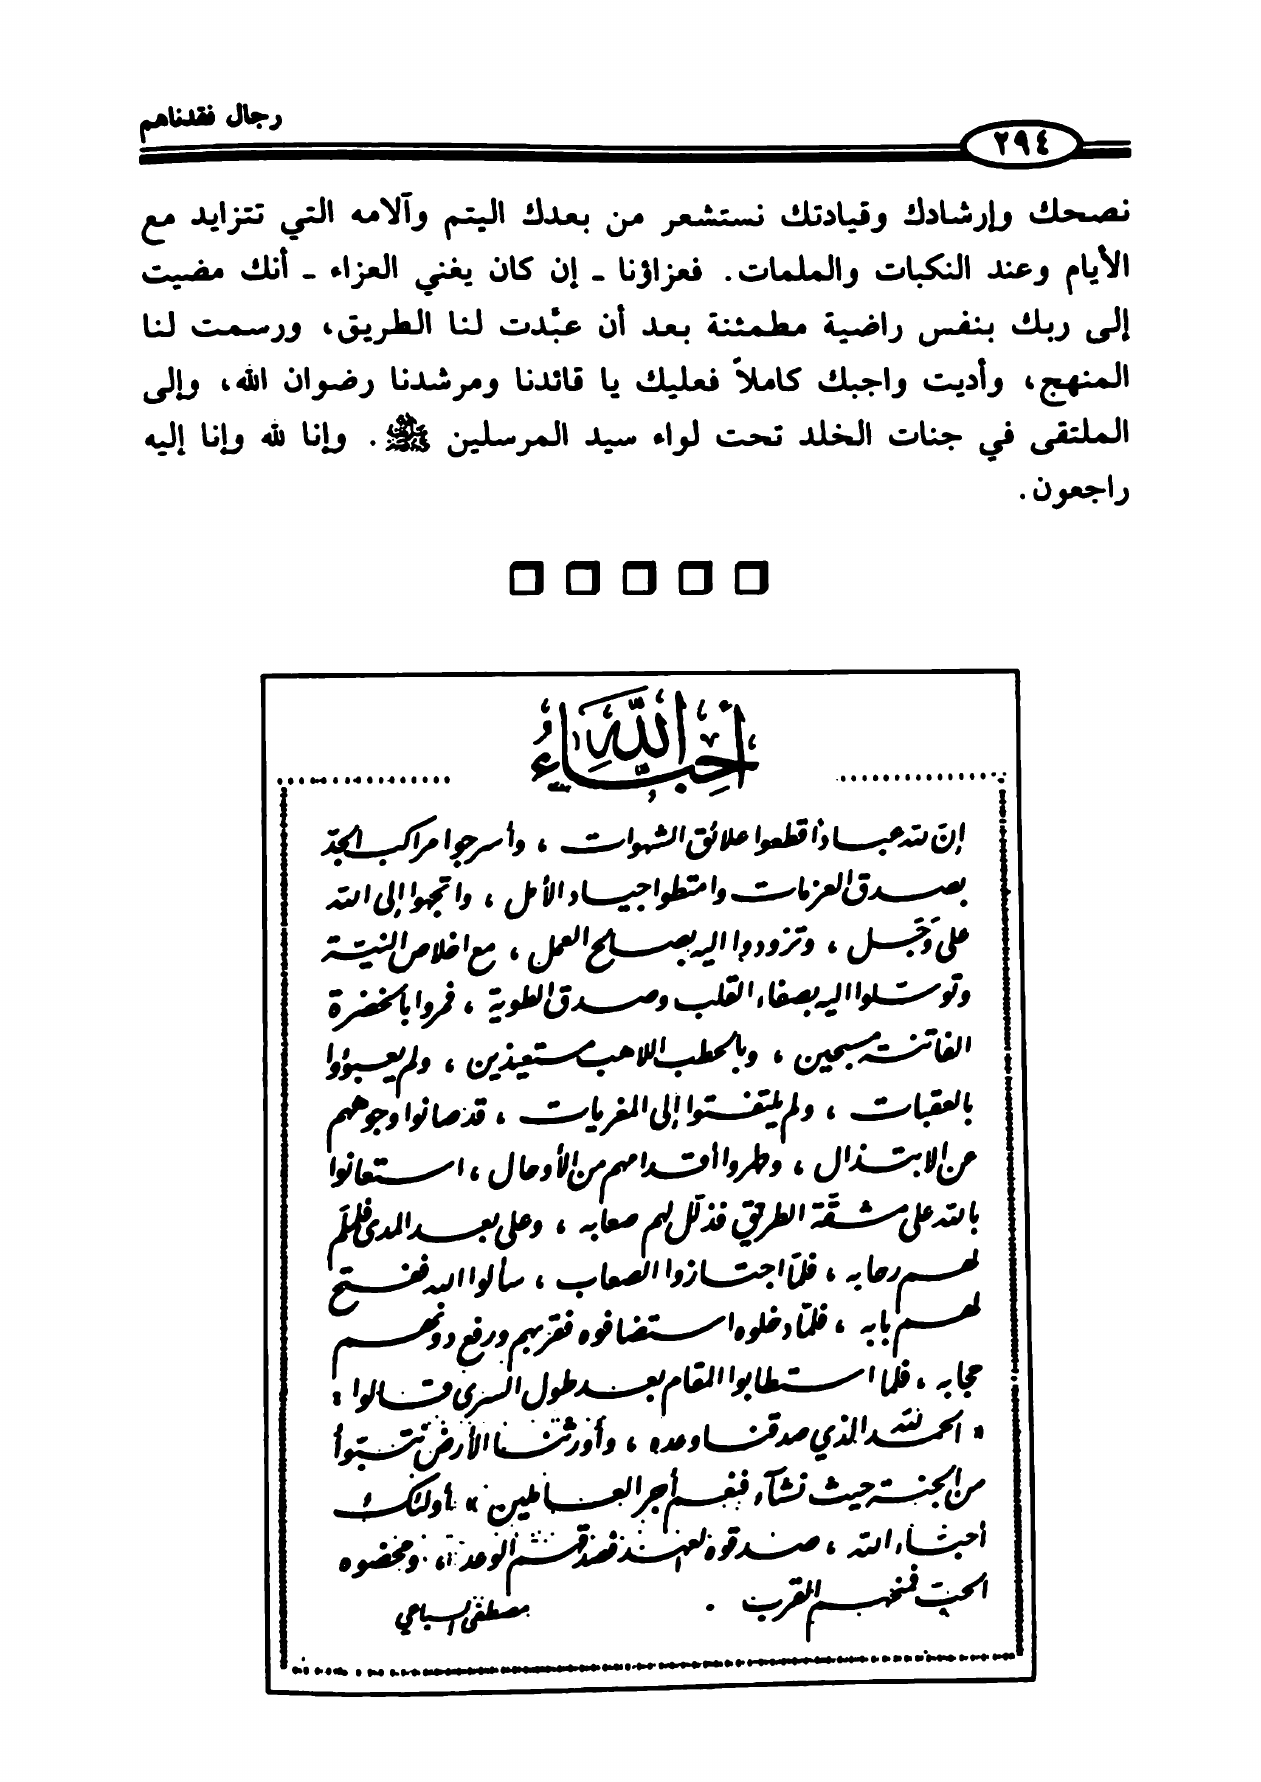 رجال فقدناهم
٢٩٤
نصحك وإرشادك وقيادتك نستشعر من بعدك اليتم وآلامه التي تتزايد مع
الأيام وعند النكبات والملمات. فعزاؤنا ـ إن كان يغني العزاء ـ أنك مضيت
إلى ربك بنفس راضية مطمئنة بعد أن عبَّدت لنا الطريق، ورسمت لنا
المنهج، وأديت واجبك كاملاً فعليك يا قائدنا ومرشدنا رضوان الله، وإلى
الملتقى في جنات الخلد تحت لواء سيد المرسلين ﷺ. وإنا لله وإنا إليه
راجعون.
أحباء الله
إن لله عباداً قطعوا علائق الشهوات ، وأسرجوا مراكب الجدّ
بصدق العزمات وامتطوا جياد الأمل ، واتجهوا إلى الله
على وَجَل ، وتزودوا اليه بصالح العمل ، مع اخلاص النيّة
وتوسّلوا اليه بصفاء القلب وصدق الطوية ، فمروا بالخضرة
الفاتنة مسبحين ، وبالحطب اللاهب مستعيذين ، ولم يعبؤوا
بالعقبات ، ولم يلتفتوا إلى المغريات ، قد صانوا وجوههم
عن الابتذال ، وطهروا أقدامهم من الأوحال ، استعانوا
بالله على مشقّة الطريق فذلّل لهم صعابه ، وعلى بعد المدى فلملم
لهم رحابه ، فلمّا اجتازوا الصعاب ، سألوا الله ففتح
لهم بابه ، فلمّا دخلوه استضافوه فقربهم ورفع دونهم
حجابه ، فلما استطابوا المقام بعد طول السرى قالوا :
« الحمد لله الذي صدقنا وعده ، وأورثنا الأرض نتبوأ
من الجنة حيث نشآء فنعم أجر العاملين » أولئك
أحبّاء الله ، صدقوه العهد فصدقهم الوعد ، ومحضوه
الحبّ فمنحهم القرب .
مصطفى السباعي